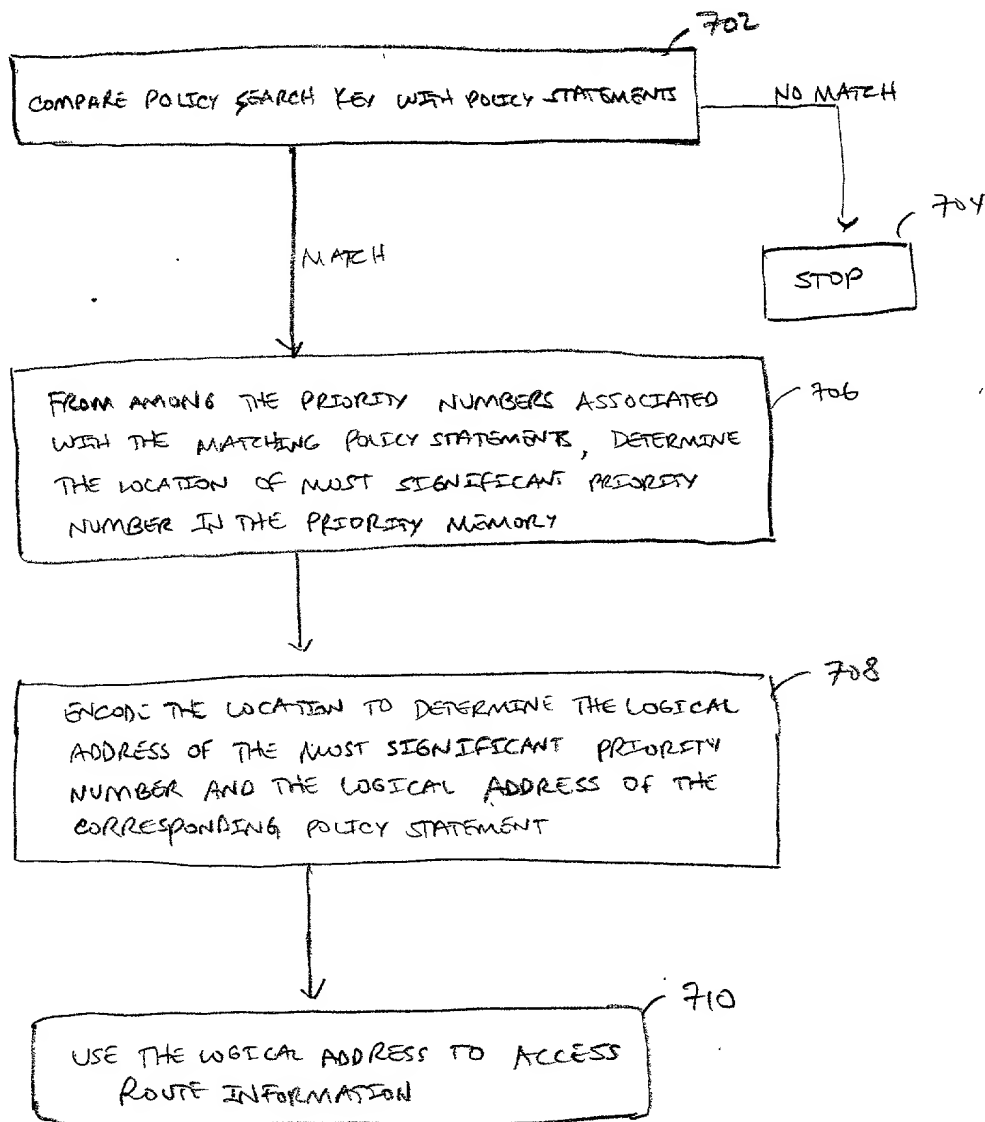 702
COMPARE POLICY SEARCH KEY WITH POLICY STATEMENTS
NO MATCH
704
STOP
MATCH
706
FROM AMONG THE PRIORITY NUMBERS ASSOCIATED
WITH THE MATCHING POLICY STATEMENTS, DETERMINE
THE LOCATION OF MOST SIGNIFICANT PRIORITY
NUMBER IN THE PRIORITY MEMORY
708
ENCODE THE LOCATION TO DETERMINE THE LOGICAL
ADDRESS OF THE MOST SIGNIFICANT PRIORITY
NUMBER AND THE LOGICAL ADDRESS OF THE
CORRESPONDING POLICY STATEMENT
710
USE THE LOGICAL ADDRESS TO ACCESS
ROUTE INFORMATION